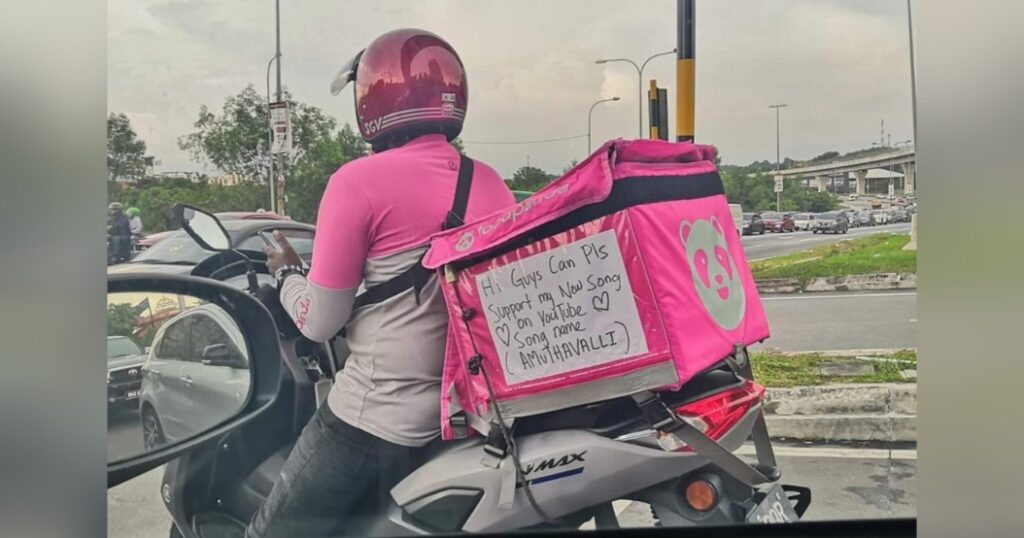 SGV
foodpanda
Hi Guys Can Pls
Support my New Song
♡ on YouTube ♡
Song name
(AMUTHAVALLI)
NMAX